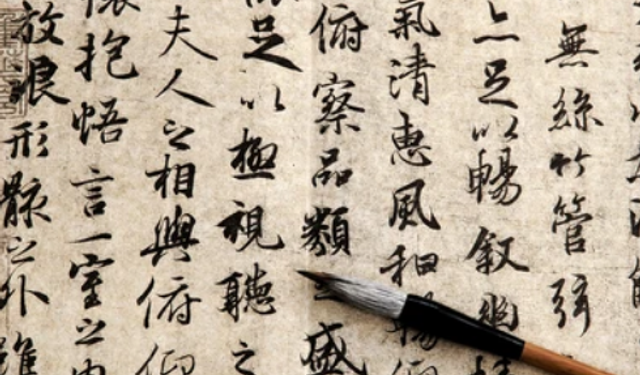 無絲竹管弦
亦足以暢叙幽
氣清惠風和暢仰
俯察品類之盛
足以極視聽之
夫人之相與俯仰
懷抱悟言一室之內
放浪形骸之外雖